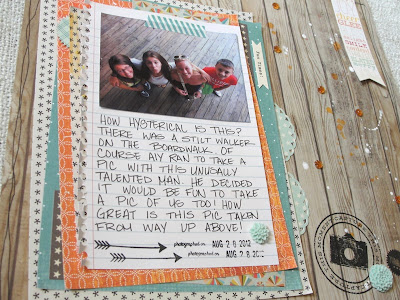 HOW HYSTERICAL IS THIS?
THERE WAS A STILT WALKER
ON THE BOARDWALK. OF
COURSE ALY RAN TO TAKE A
PIC WITH THIS UNUSALLY
TALENTED MAN. HE DECIDED
IT WOULD BE FUN TO TAKE
A PIC OF US TOO! HOW
GREAT IS THIS PIC TAKEN
FROM WAY UP ABOVE!
photographed on: AUG 2 8 2012
photographed on: AUG 2 8 2012